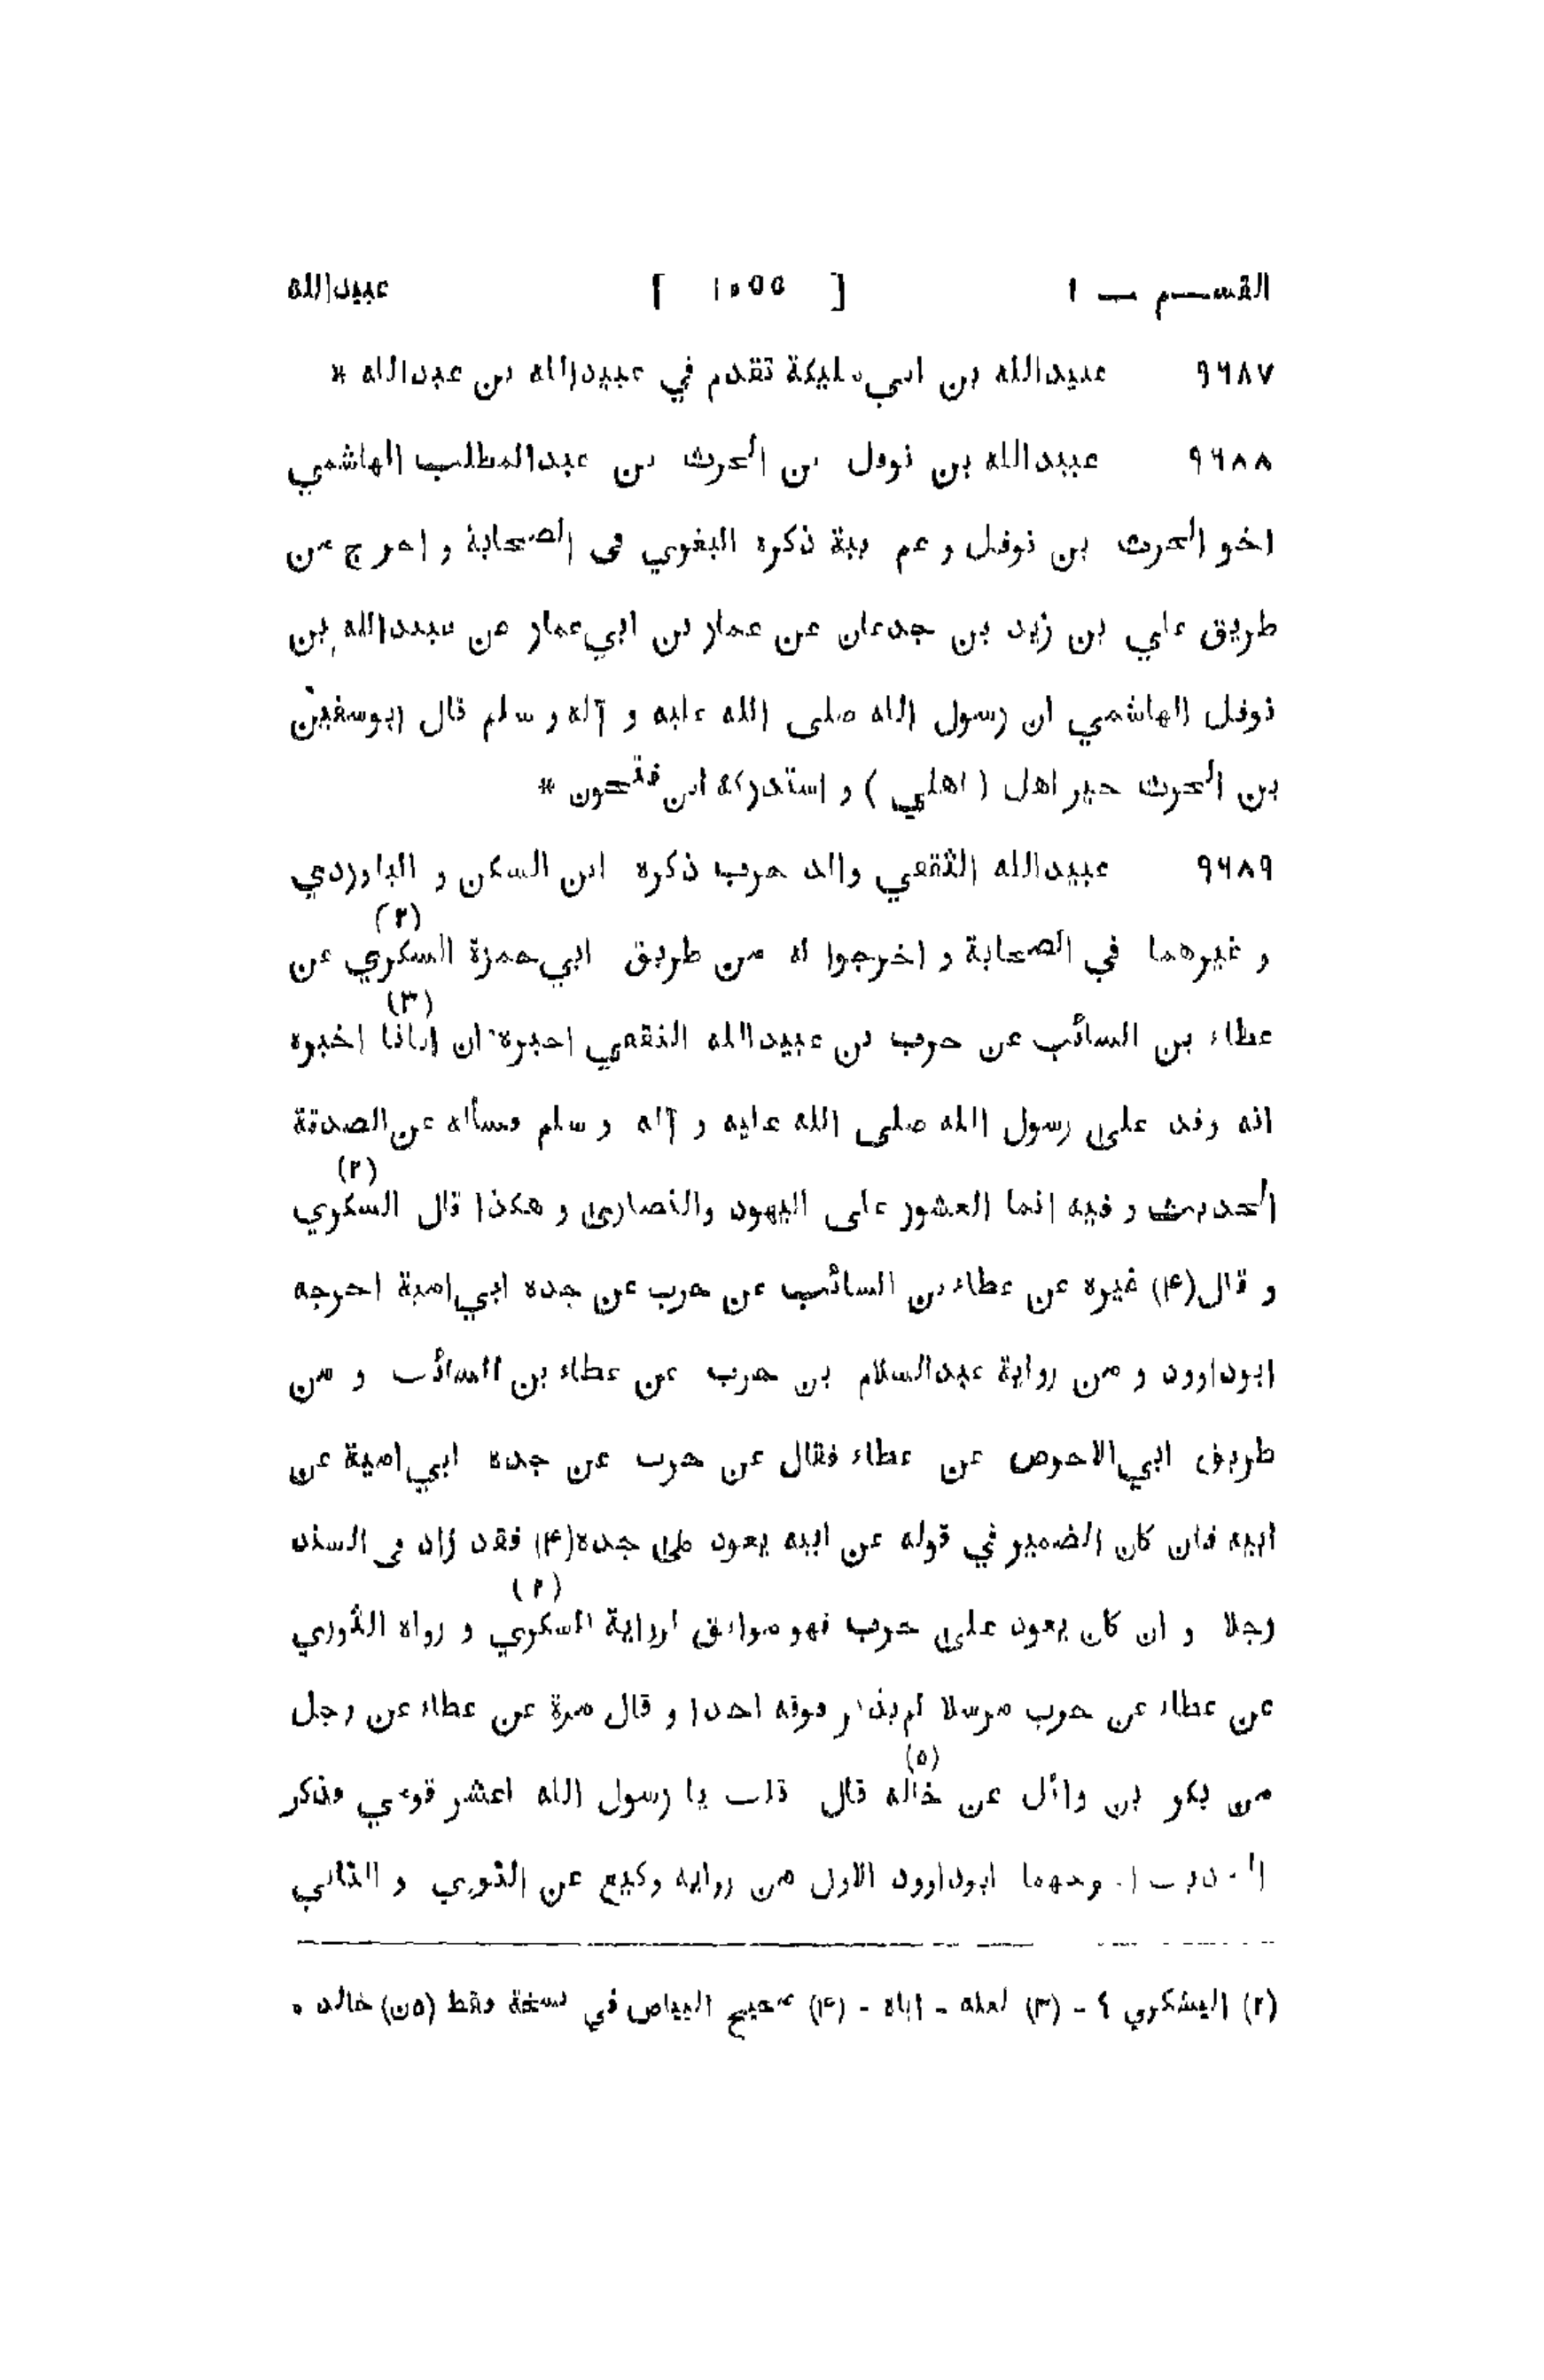 القسم — ١ [ ١٠٥٥ ] عبيدالله
٩٦٨٧ عبيدالله بن ابي مليكة تقدم في عبيدالله بن عبدالله *
٩٦٨٨ عبيدالله بن نوفل بن الحرث بن عبدالمطلب الهاشمي
اخو الحرث بن نوفل و عم ببة ذكره البغوي في الصحابة و اخرج من
طريق علي بن زيد بن جدعان عن عمار بن ابي عمار عن عبيدالله بن
نوفل الهاشمي ان رسول الله صلى الله عليه و آله و سلم قال ابوسفين
بن الحرث خير اهل ( اهلي ) و استدركه ابن فتحون *
٩٦٨٩ عبيدالله الثقفي والد حرب ذكره ابن السكن و الباوردي
و غيرهما في الصحابة و اخرجوا له من طريق ابي حمزة السكري (٢) عن
عطاء بن السائب عن حرب بن عبيدالله الثقفي اخبره ان ابانا (٣) اخبره
انه وفد على رسول الله صلى الله عليه و آله و سلم فسأله عن الصدقة
الحديث و فيه انما العشور على اليهود والنصارى و هكذا قال السكري (٢)
و قال (۴) غيره عن عطاء بن السائب عن حرب عن جده ابي امية اخرجه
ابوداوود و من رواية عبدالسلام بن حرب عن عطاء بن السائب و من
طريق ابي الاحوص عن عطاء فقال عن حرب عن جده ابي امية عن
ابيه فان كان الضمير في قوله عن ابيه يعود على جده (۴) فقد زاد في السند
رجلا و ان كان يعود على حرب فهو موافق لرواية السكري (٢) و رواه الثوري
عن عطاء عن حرب مرسلا لم يذكر فوقه احدا و قال مرة عن عطاء عن رجل
من بكر بن وائل عن خاله (٥) قال قلت يا رسول الله اعشر قومي فذكر
الحديث اخرجهما ابوداوود الاول من رواية وكيع عن الثوري و الثاني
(٢) اليشكري ؟ - (٣) لعله - اباه - (۴) صحيح البياض في نسخة فقط (٥ن) خالد •